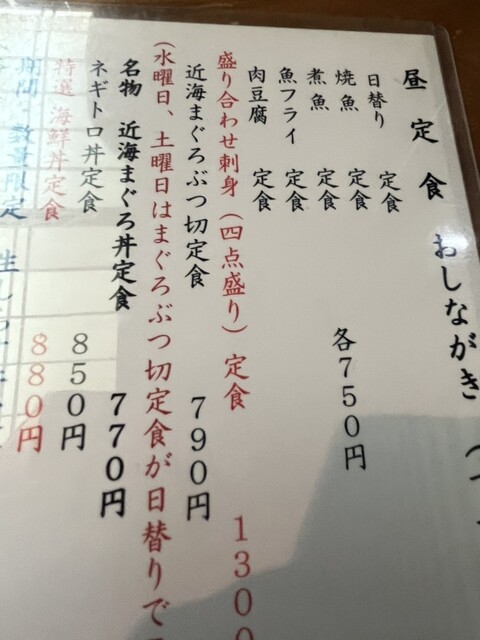 昼定食 おしながき
日替り 定食
焼魚 定食
煮魚 定食 各750円
魚フライ 定食
肉豆腐 定食
盛り合わせ刺身（四点盛り）定食 1300
近海まぐろぶつ切定食 790円
（水曜日、土曜日はまぐろぶつ切定食が日替りで
名物 近海まぐろ丼定食 770円
ネギトロ丼定食 850円
特選 海鮮丼定食 880円
期間・数量限定 生しらす